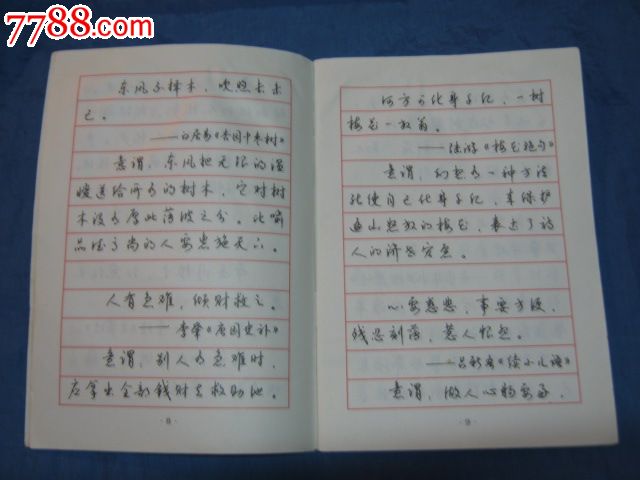 7788.com
东风不择木，吹煦长未
已。
——白居易《杏园中枣树》
意谓，东风把无限的温
暖送给所有的树木，它对树
木没有厚此薄彼之分。比喻
品德高尚的人要惠施天下。
人有急难，倾财救之。
——李肇《唐国史补》
意谓，别人有急难时，
应拿出全部钱财去救助他。
·8·
何方可化身千亿，一树
梅花一放翁。
——陆游《梅花绝句》
意谓，幻想有一种方法
能使自己化身千亿，来保护
遍山怒放的梅花，表达了诗
人的济世宏愿。
心要慈悲，事要方便，
残忍刻薄，惹人恨怨。
——吕新吾《续小儿语》
意谓，做人心肠要
·9·